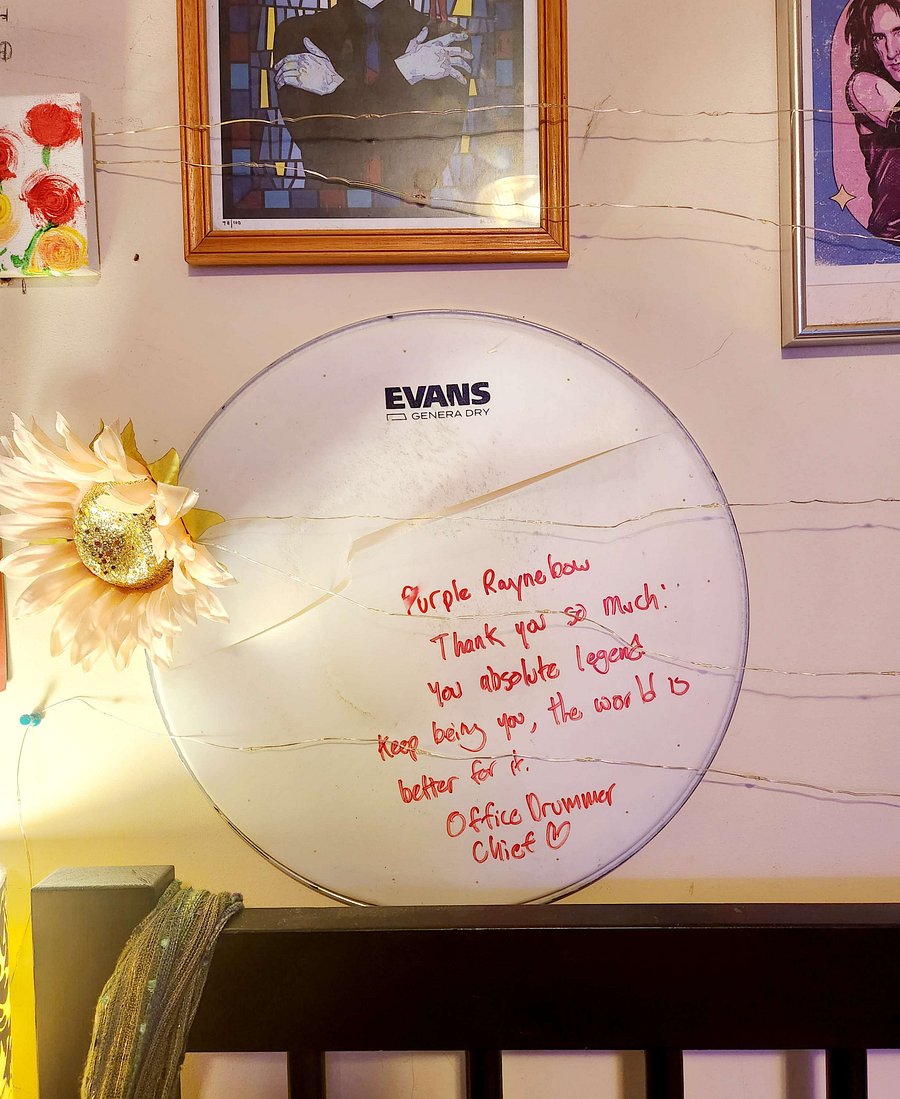 98/100
EVANS
GENERA DRY
Purple Raynebow
Thank you so much!
You absolute legend
Keep being you, the world is
better for it.
Office Drummer
Chief ♡